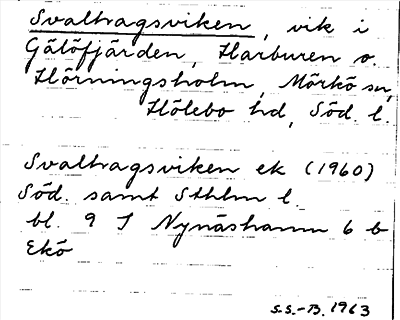 Svaltragsviken, vik i
Gälöfjärden, Harburen o.
Hörningsholm, Mörkö sn,
Hölebo hd, Söd. l.
Svaltragsviken ek (1960)
Söd. samt Sthlm l.
bl. 9 I Nynäshamn 6 b
Ekö
S.S.-B. 1963